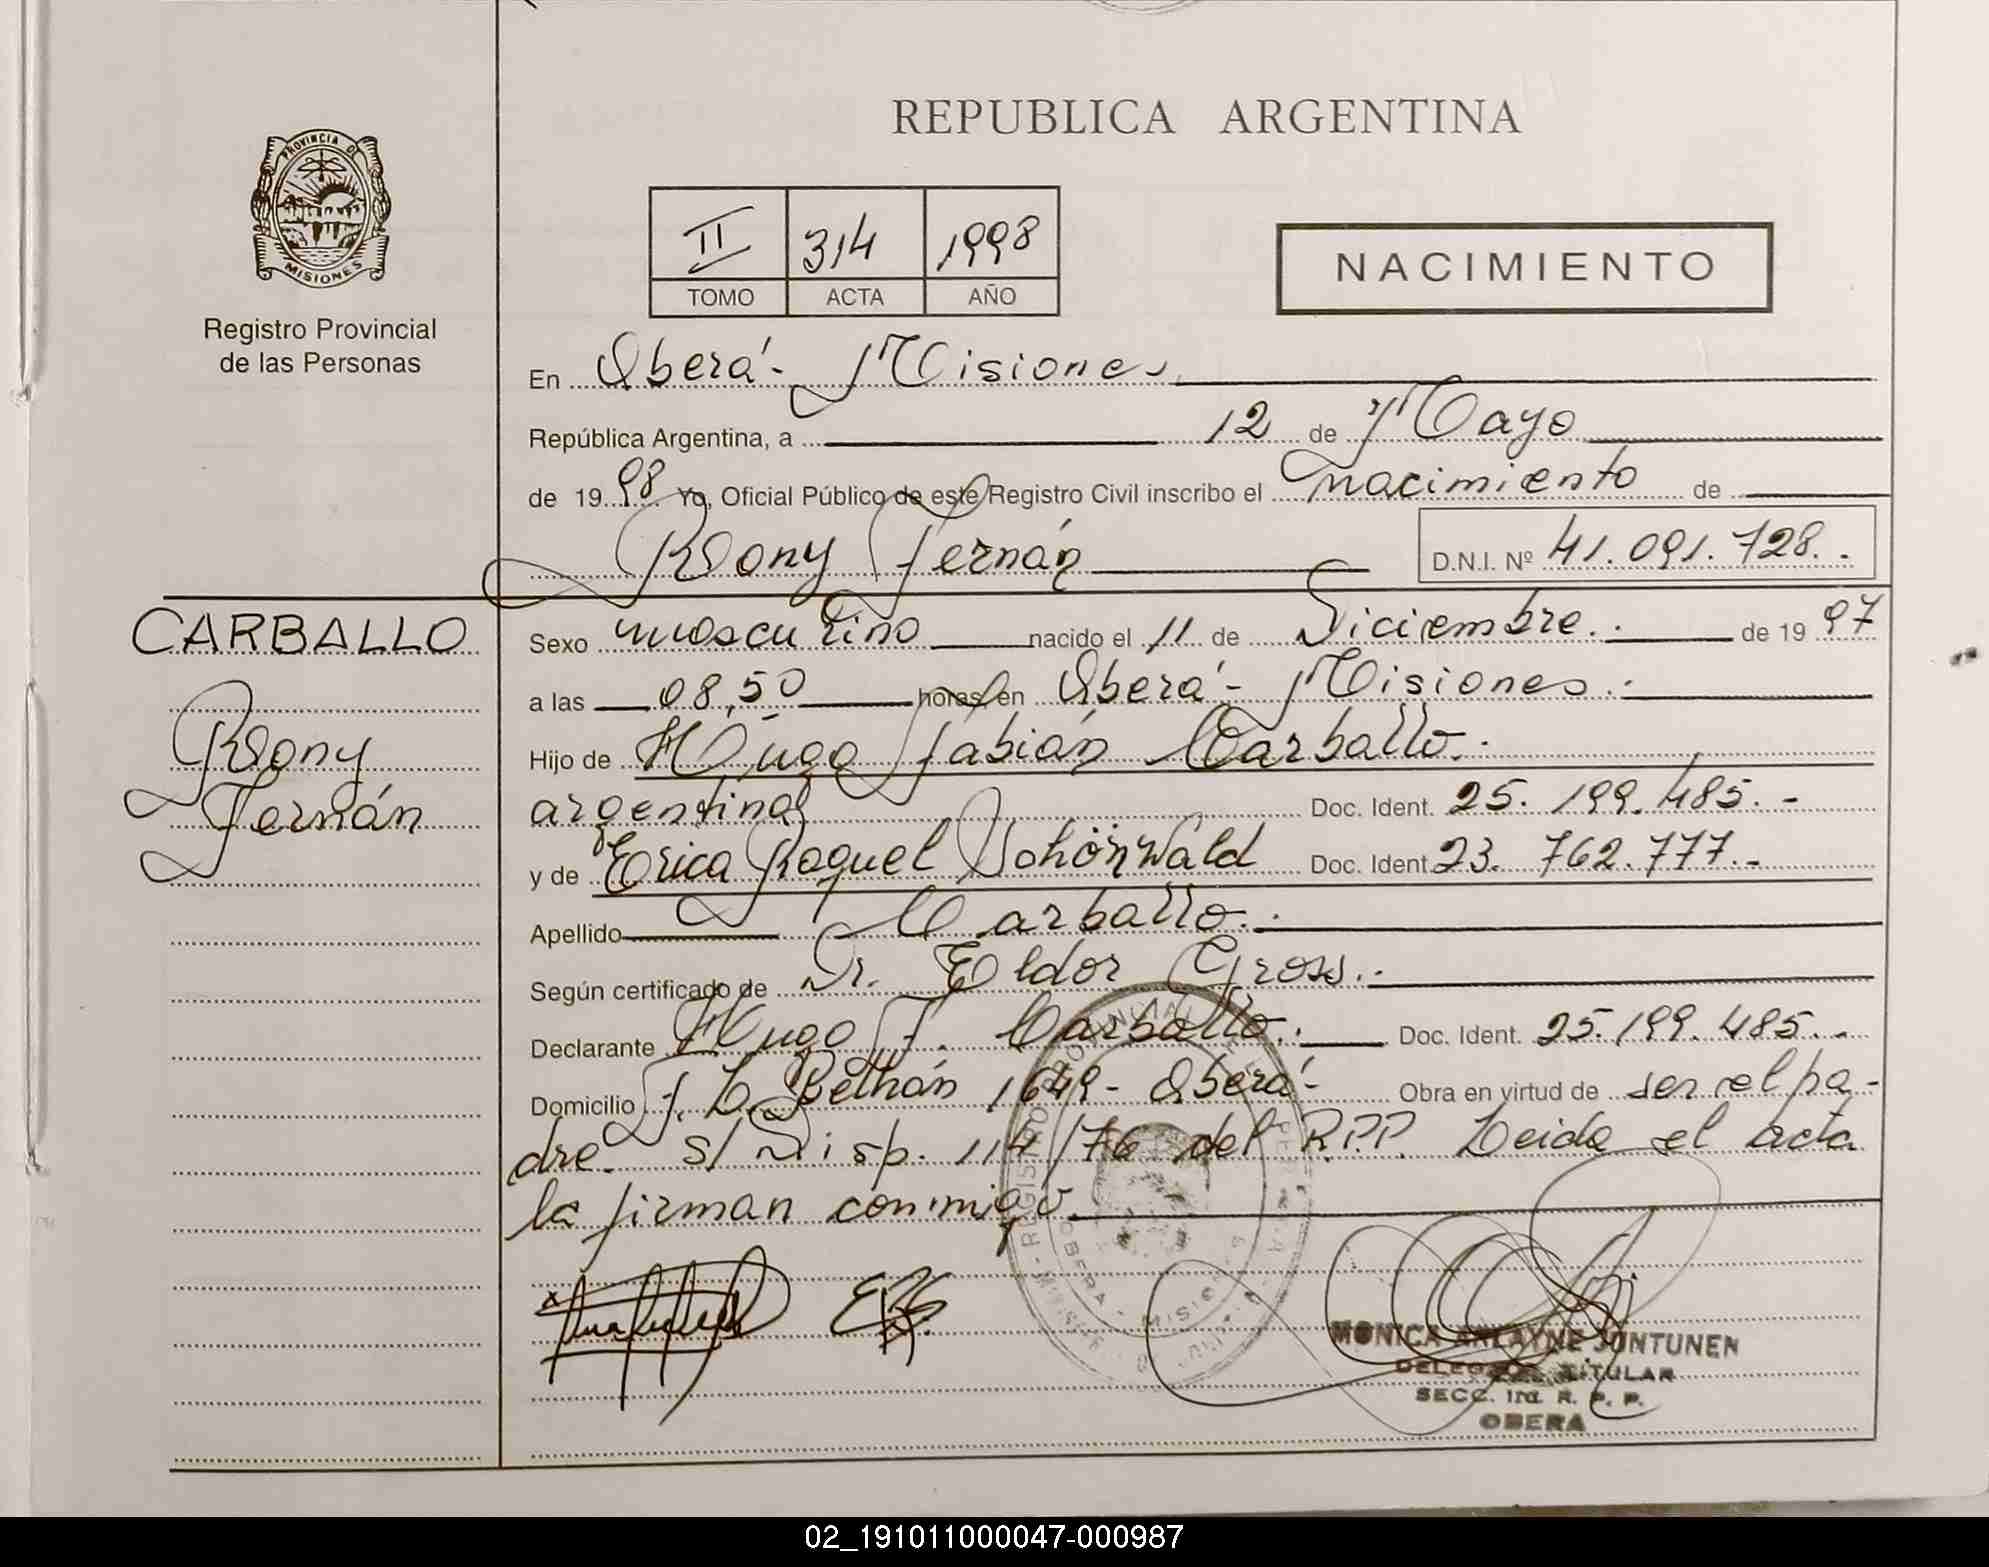 REPUBLICA ARGENTINA
PROVINCIA DE
MISIONES
Registro Provincial
de las Personas
II 314 1998
TOMO ACTA AÑO
NACIMIENTO
En Oberá - Misiones
República Argentina, a 12 de Mayo
de 1998 Yo, Oficial Público de este Registro Civil inscribo el nacimiento de
Rony Fernán D.N.I. Nº 41.091.728.-
CARBALLO
Rony
Fernán
Sexo masculino nacido el 11 de Diciembre.. de 1997
a las 08,50 horas, en Oberá - Misiones.-
Hijo de Hugo Fabián Carballo.-
argentina Doc. Ident. 25.199.485.-
y de Erica Raquel Schönwald Doc. Ident. 23.762.777.-
Apellido Carballo.-
Según certificado de Dr. Eldor Gross.-
Declarante Hugo F. Carballo.- Doc. Ident. 25.199.485.-
Domicilio 1649 - Oberá - Obra en virtud de ser el pa-
dre. s/ Disp. 114/76 del R.P.P. Leida el acta
la firman conmigo.
OBERA - MISIONES
MONICA JUNTUNEN
TITULAR
SECC. 1ra. R. P. P.
OBERA
02_191011000047-000987